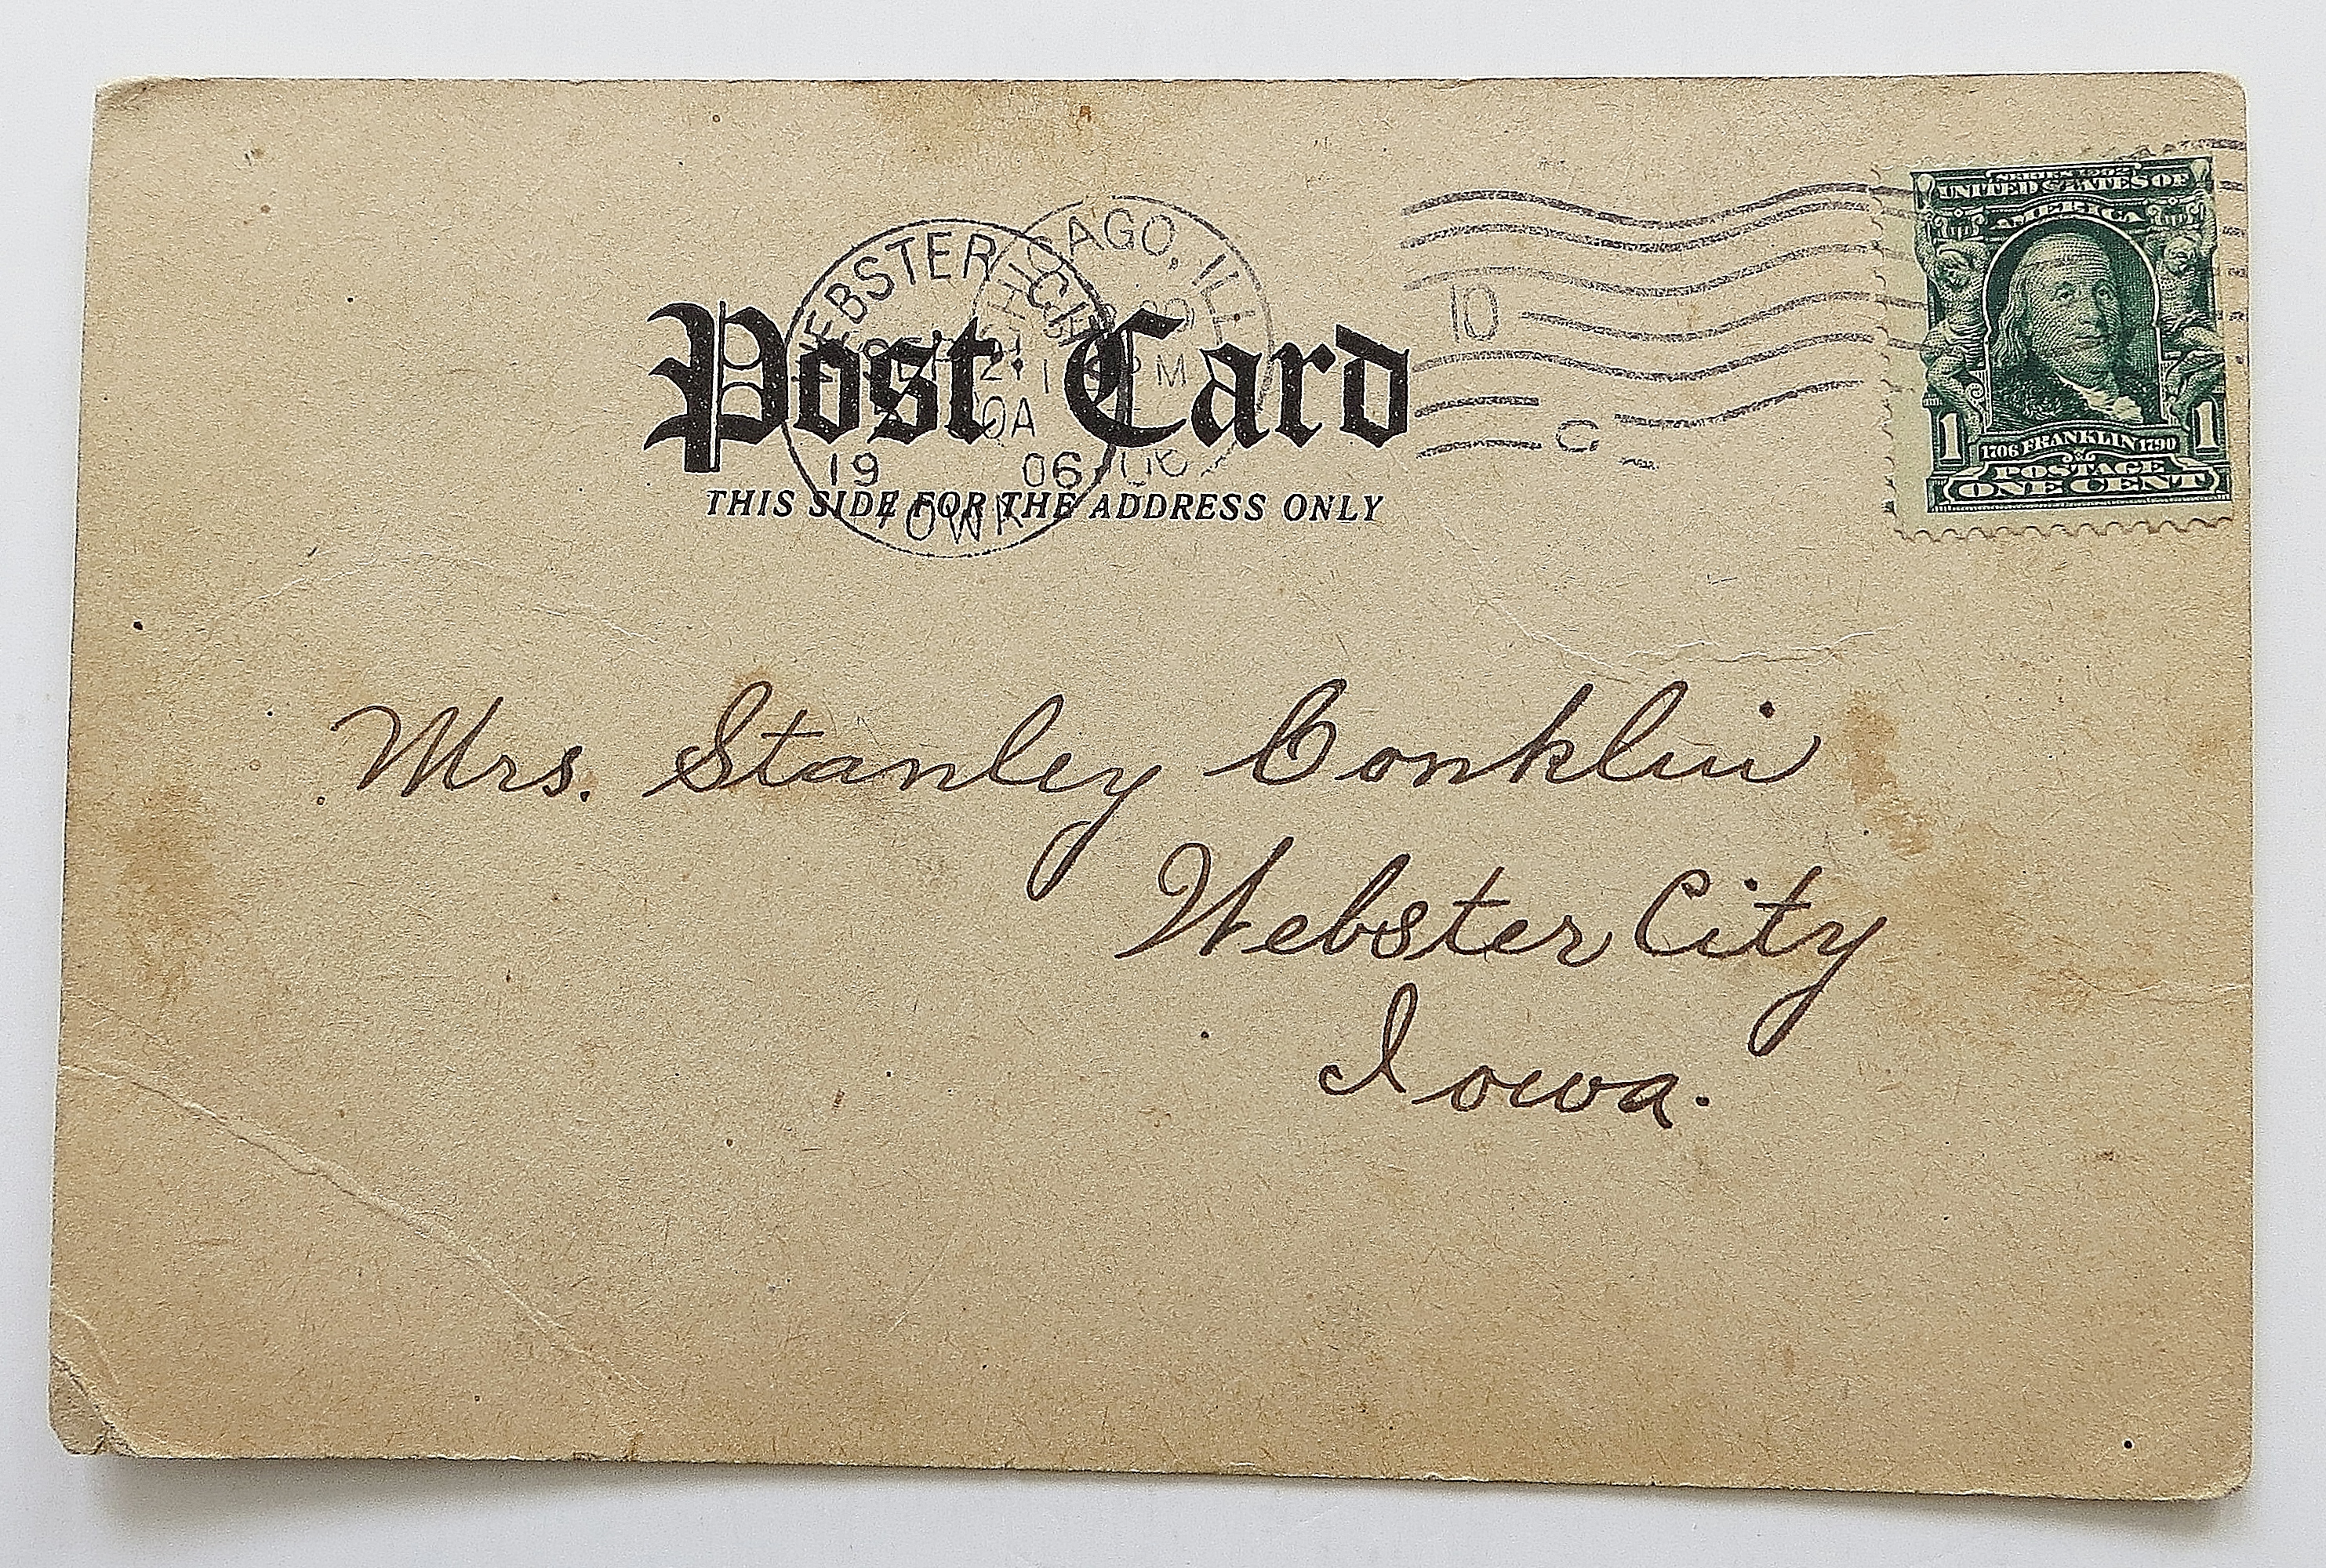 WEBSTER CITY
19 06
IOWA
CHICAGO, ILL.
PM
10
C
Post Card
THIS SIDE FOR THE ADDRESS ONLY
SERIES 1902
UNITED STATES OF
AMERICA
1 1706 FRANKLIN 1790 1
POSTAGE
ONE CENT
Mrs. Stanley Conklin
Webster City
Iowa.